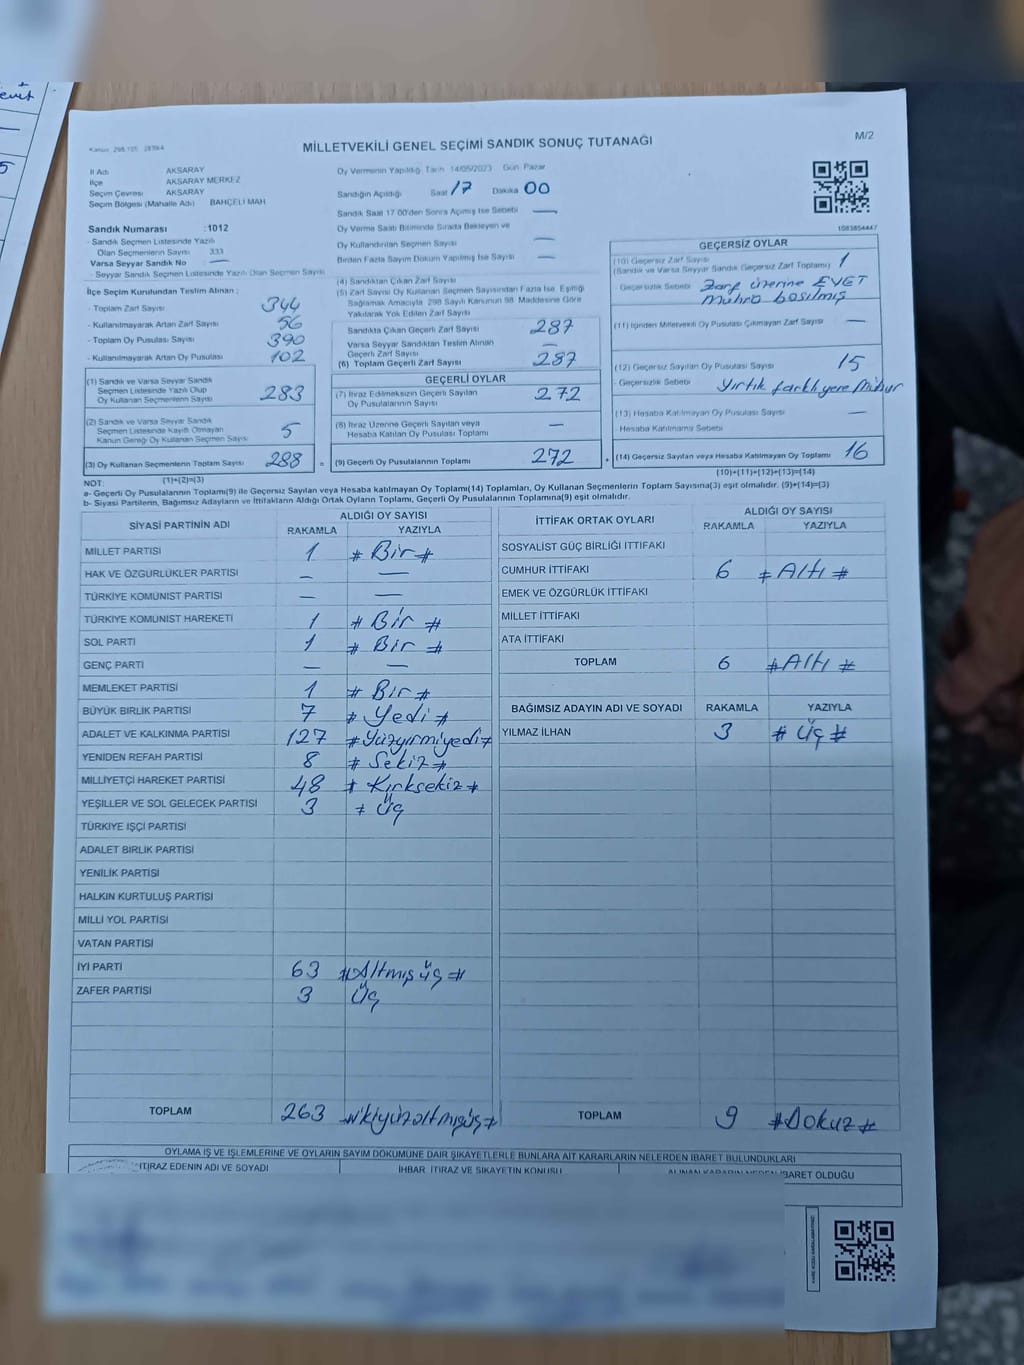 evet
5
Kanun 298-105
M/2
MİLLETVEKİLİ GENEL SEÇİMİ SANDIK SONUÇ TUTANAĞI
İl Adı AKSARAY
İlçe AKSARAY MERKEZ
Seçim Çevresi AKSARAY
Seçim Bölgesi (Mahalle Adı) BAHÇELİ MAH
Sandık Numarası :1012
- Sandık Seçmen Listesinde Yazılı
Olan Seçmenlerin Sayısı 333
Varsa Seyyar Sandık No —
- Seyyar Sandık Seçmen Listesinde Yazılı Olan Seçmen Sayısı
İlçe Seçim Kurulundan Teslim Alınan :
- Toplam Zarf Sayısı 344
- Kullanılmayarak Artan Zarf Sayısı 56
- Toplam Oy Pusulası Sayısı 390
- Kullanılmayarak Artan Oy Pusulası 102
(1) Sandık ve Varsa Seyyar Sandık
Seçmen Listesinde Yazılı Olup
Oy Kullanan Seçmenlerin Sayısı 283
(2) Sandık ve Varsa Seyyar Sandık
Seçmen Listesinde Kayıtlı Olmayan
Kanun Gereği Oy Kullanan Seçmen Sayısı 5
(3) Oy Kullanan Seçmenlerin Toplam Sayısı 288 =
(1)+(2)=(3)
Oy Vermenin Yapıldığı Tarih 14/05/2023 Gün Pazar
Sandığın Açıldığı Saat 17 Dakika 00
Sandık Saat 17 00'den Sonra Açılmış İse Sebebi —
Oy Verme Saati Bitiminde Sırada Bekleyen ve
Oy Kullandırılan Seçmen Sayısı —
Birden Fazla Sayım Döküm Yapılmış İse Sayısı —
(4) Sandıktan Çıkan Zarf Sayısı
(5) Zarf Sayısı Oy Kullanan Seçmen Sayısından Fazla İse, Eşitliği
Sağlamak Amacıyla 298 Sayılı Kanunun 98. Maddesine Göre
Yakılarak Yok Edilen Zarf Sayısı
Sandıkta Çıkan Geçerli Zarf Sayısı 287
Varsa Seyyar Sandıktan Teslim Alınan
Geçerli Zarf Sayısı —
(6) Toplam Geçerli Zarf Sayısı 287
GEÇERLİ OYLAR
(7) İtiraz Edilmeksizin Geçerli Sayılan
Oy Pusulalarının Sayısı 272
(8) İtiraz Üzerine Geçerli Sayılan veya
Hesaba Katılan Oy Pusulaları Toplamı —
(9) Geçerli Oy Pusulalarının Toplamı 272 +
1083854447
GEÇERSİZ OYLAR
(10) Geçersiz Zarf Sayısı 1
(Sandık ve Varsa Seyyar Sandık Geçersiz Zarf Toplamı)
- Geçersizlik Sebebi Zarf üzerine EVET
mührü basılmış
(11) İçinden Milletvekili Oy Pusulası Çıkmayan Zarf Sayısı —
(12) Geçersiz Sayılan Oy Pusulası Sayısı 15
- Geçersizlik Sebebi Yırtık farklı yere Mühür
(13) Hesaba Katılmayan Oy Pusulası Sayısı —
- Hesaba Katılmama Sebebi
(14) Geçersiz Sayılan veya Hesaba Katılmayan Oy Toplamı 16
(10)+(11)+(12)+(13)=(14)
NOT:
a- Geçerli Oy Pusulalarının Toplamı(9) ile Geçersiz Sayılan veya Hesaba katılmayan Oy Toplamı(14) Toplamları, Oy Kullanan Seçmenlerin Toplam Sayısına(3) eşit olmalıdır. (9)+(14)=(3)
b- Siyasi Partilerin, Bağımsız Adayların ve İttifakların Aldığı Ortak Oyların Toplamı, Geçerli Oy Pusulalarının Toplamına(9) eşit olmalıdır.
SİYASİ PARTİNİN ADI ALDIĞI OY SAYISI
RAKAMLA YAZIYLA
MİLLET PARTİSİ 1 # Bir #
HAK VE ÖZGÜRLÜKLER PARTİSİ — —
TÜRKİYE KOMÜNİST PARTİSİ — —
TÜRKİYE KOMÜNİST HAREKETİ 1 # Bir #
SOL PARTİ 1 # Bir #
GENÇ PARTİ — —
MEMLEKET PARTİSİ 1 # Bir #
BÜYÜK BİRLİK PARTİSİ 7 # Yedi #
ADALET VE KALKINMA PARTİSİ 127 #Yüzyirmiyedi#
YENİDEN REFAH PARTİSİ 8 # Sekiz #
MİLLİYETÇİ HAREKET PARTİSİ 48 # Kırksekiz #
YEŞİLLER VE SOL GELECEK PARTİSİ 3 # Üç
TÜRKİYE İŞÇİ PARTİSİ
ADALET BİRLİK PARTİSİ
YENİLİK PARTİSİ
HALKIN KURTULUŞ PARTİSİ
MİLLİ YOL PARTİSİ
VATAN PARTİSİ
İYİ PARTİ 63 #Altmış üç #
ZAFER PARTİSİ 3 Üç
TOPLAM 263 #ikiyüzaltmışüç#
İTTİFAK ORTAK OYLARI ALDIĞI OY SAYISI
RAKAMLA YAZIYLA
SOSYALİST GÜÇ BİRLİĞİ İTTİFAKI
CUMHUR İTTİFAKI 6 # Altı #
EMEK VE ÖZGÜRLÜK İTTİFAKI
MİLLET İTTİFAKI
ATA İTTİFAKI
TOPLAM 6 #Altı #
BAĞIMSIZ ADAYIN ADI VE SOYADI RAKAMLA YAZIYLA
YILMAZ İLHAN 3 # Üç #
TOPLAM 9 #Dokuz #
OYLAMA İŞ VE İŞLEMLERİNE VE OYLARIN SAYIM DÖKÜMÜNE DAİR ŞİKAYETLERLE BUNLARA AİT KARARLARIN NELERDEN İBARET BULUNDUKLARI
İTİRAZ EDENİN ADI VE SOYADI İHBAR, İTİRAZ VE ŞİKAYETİN KONUSU ALINAN KARARIN NEDEN İBARET OLDUĞU